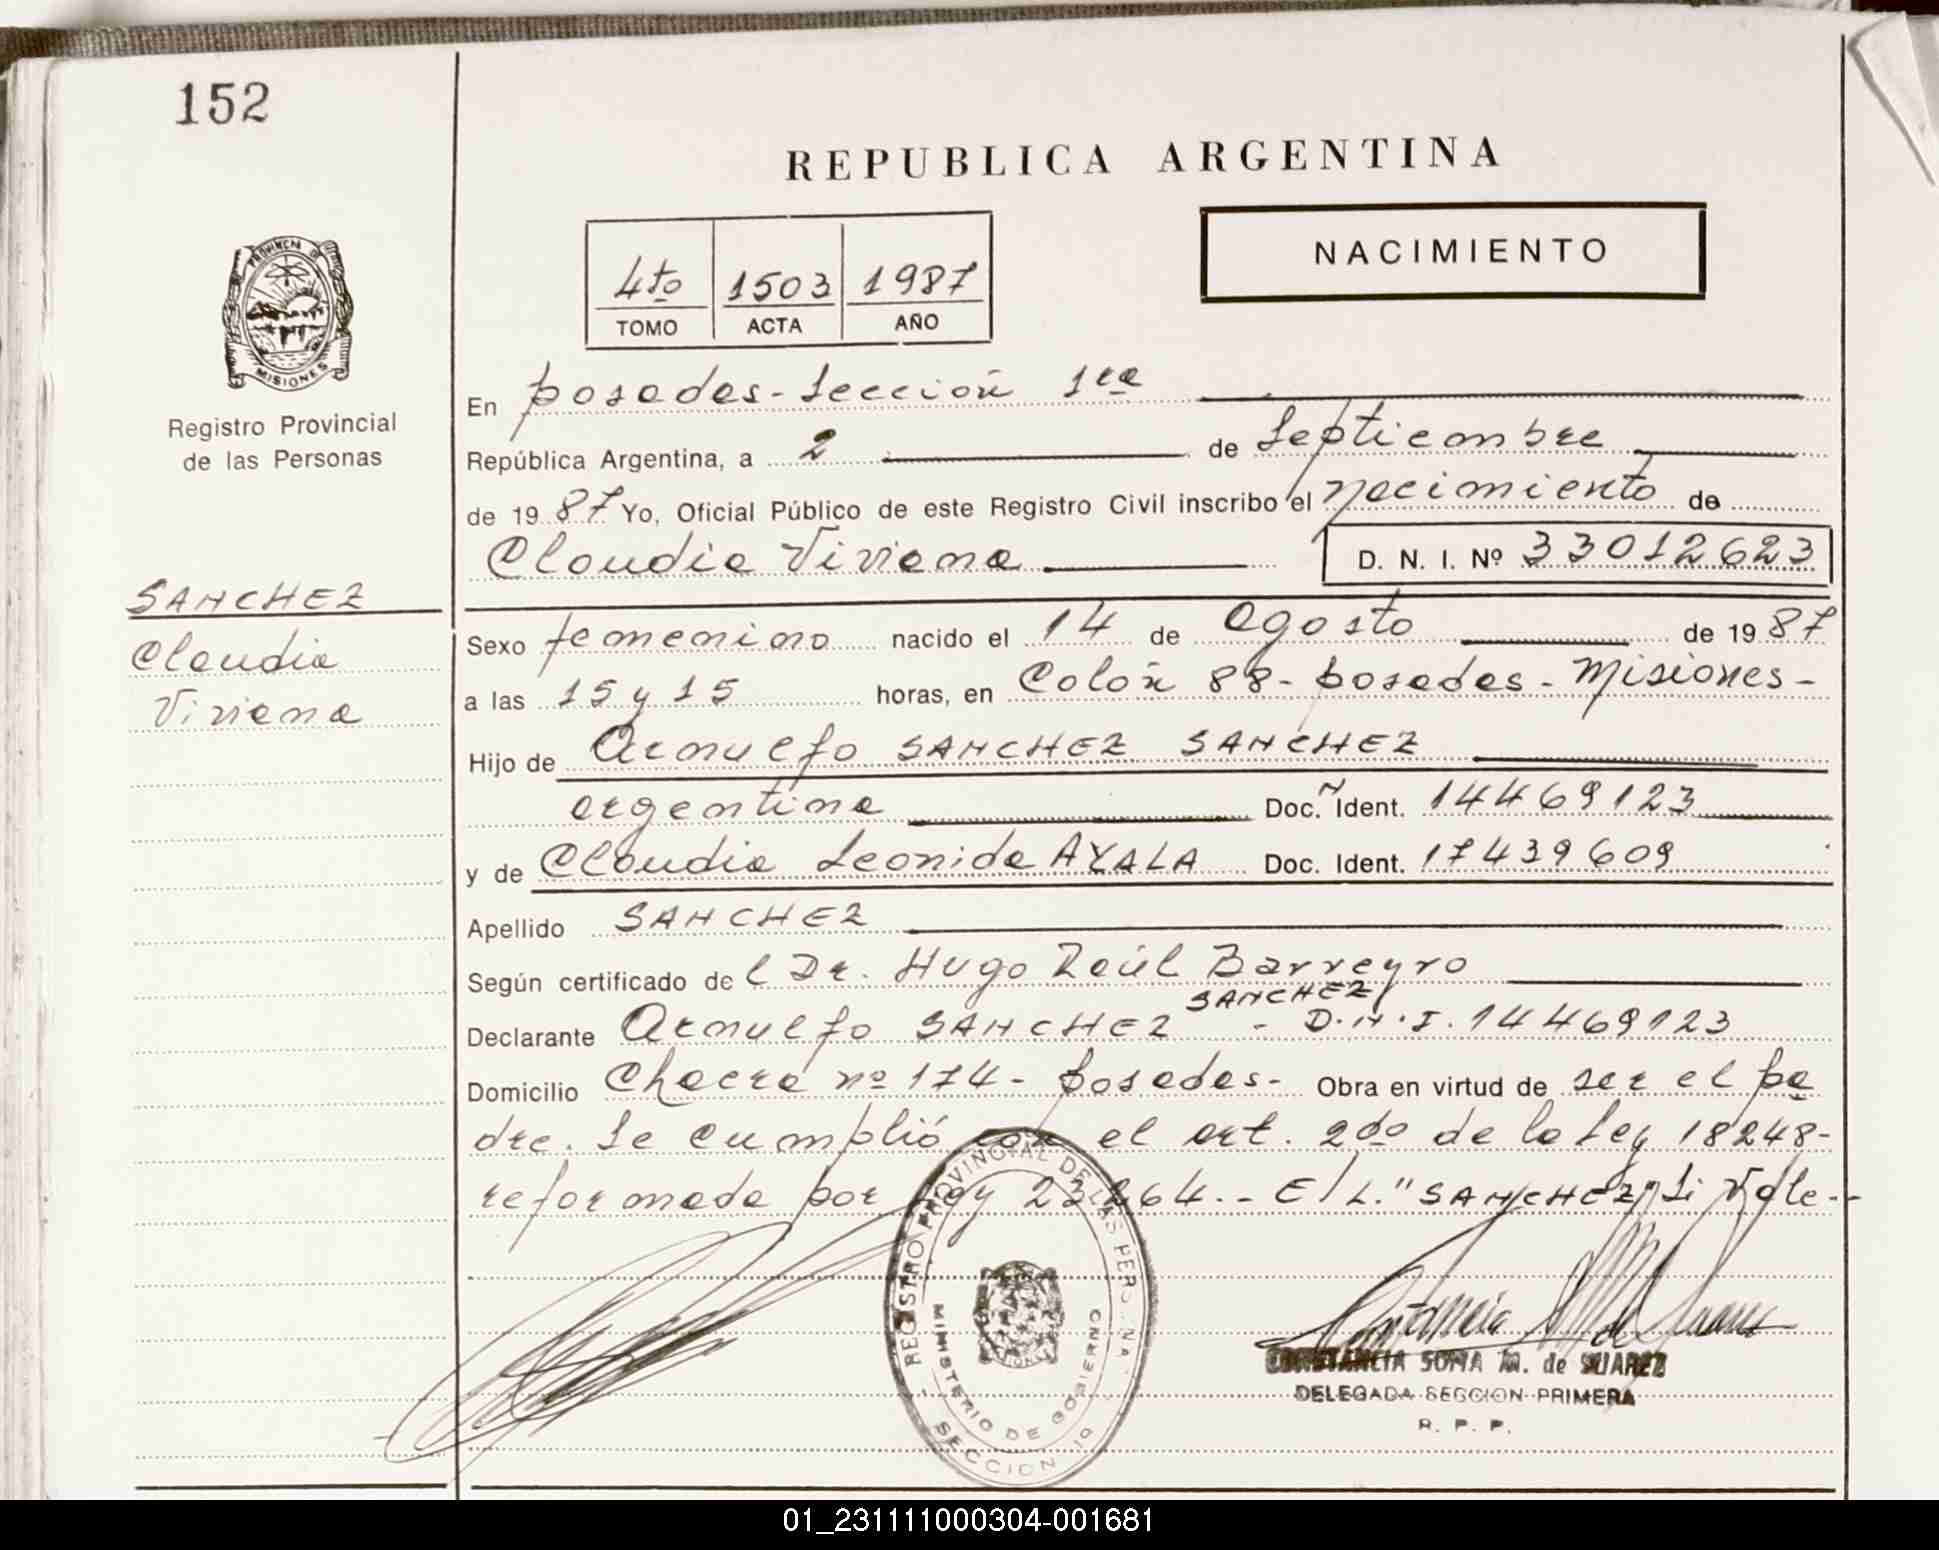 152
REPUBLICA ARGENTINA
NACIMIENTO
4to 1503 1987
TOMO ACTA AÑO
PROVINCIA D MISIONES
Registro Provincial
de las Personas
En posadas - Sección 1ra
República Argentina, a 2 de Septiembre
de 1987 Yo, Oficial Público de este Registro Civil inscribo el nacimiento de
Claudia Viviana D. N. I. Nº 33012623
SANCHEZ
Claudia
Viviana
Sexo femenino nacido el 14 de agosto de 1987
a las 15 y 15 horas, en Colón 88 - posadas - Misiones -
Hijo de Arnulfo SANCHEZ SANCHEZ
argentina Doc. Ident. 14469123
y de Claudia Leonida AYALA Doc. Ident. 17439609
Apellido SANCHEZ
Según certificado del Dr. Hugo Raúl Barreyro
SANCHEZ
Declarante Arnulfo SANCHEZ - D.N.I. 14469123
Domicilio Chacra nº 174 - posadas - Obra en virtud de ser el pa
dre. Se cumplió con el art. 2do de la Ley 18248 -
reformada por Ley 23264. - E/L. "SANCHEZ" Si Vale -
REGISTRO PROVINCIAL DE LAS PERSONAS
MINISTERIO DE GOBIERNO
SECCION 1º
CONSTANCIA SONIA M. de SUAREZ
DELEGADA SECCION PRIMERA
R. P. P.
01_231111000304-001681